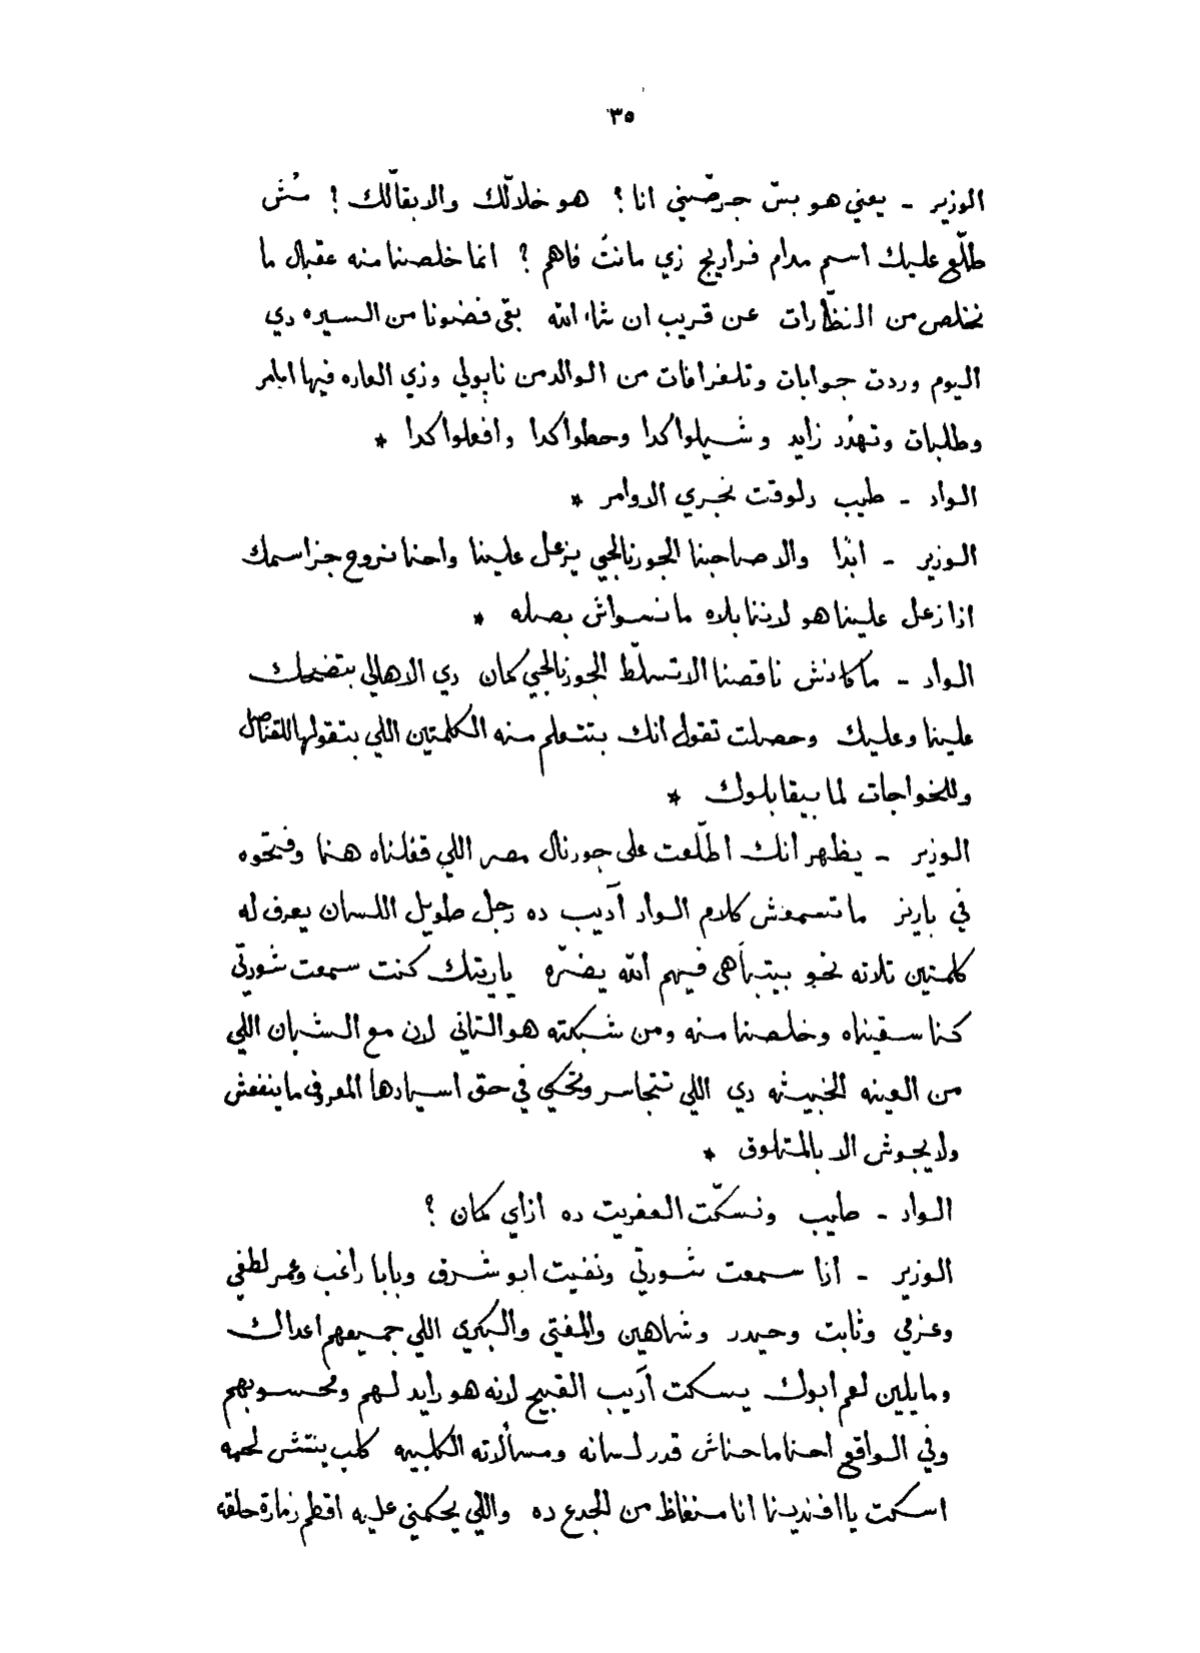 ٣٥
الوزير - يعني هو بسّ جرصّني انا؟ هو خلالّك والا بقالّك ؟ مُش
طلّع عليك اسم مدام فراريج زي مانتَ فاهم ؟ انما خلصنا منه عقبال ما
نخلص من النظّارات عن قريب ان شاء الله بقى فضونا من السيره دي
اليوم وردت جوابات وتلغرافات من الوالد من ناپولي وزي العاره فيها اوامر
وطلبات وتهدّد زايد وشيلوا كدا وحطوا كدا وافعلوا كدا *
الواد - طيب دلوقت نجري الاوامر *
الوزير - ابدًا والا صاحبنا الجورنالجي يزعل علينا واحنا نروح جزاسمك
اذا زعل علينا هو لاننا بلاه مانسواش بصله *
الواد - ماكانش ناقصنا الا تسلّط الجورنالجي كمان دي الاهالي بتضحك
علينا وعليك وحصلت تقول انك بتتعلم منه الكلمتين اللي بتقولها للقناصل
وللخواجات لما بيقابلوك *
الوزير - يظهر انك اطّلعت على جورنال مصر اللي قفلناه هنا وفتحوه
في باريز ماتسمعش كلام الواد آديب ده رجل طويل اللسان يعرف له
كلمتين تلاته نحو بيتباهى فيهم الله يضرّه ياريتك كنت سمعت شورتي
كنا سقيناه وخلصنا منه ومن شبكته هو التاني لان مع الشبان اللي
من العينه الخبيثه دي اللي تتجاسر وتحكي في حق اسيادها المعروف ماينفعش
ولا يجوش الا بالمتلوق *
الواد - طيب ونسكّت العفريت ده ازاي كمان ؟
الوزير - انا سمعت شورتي ونفيت ابو شرق وبابا راغب وعمر لطفي
وعزمي وثابت وحيدر وشاهين والمفتي والبكري اللي جميعهم اعدالك
ومايلين لعم ابوك يسكت آديب القبيح لانه هو رايد لهم ومحسوبهم
وفي الواقع احنا ماحناش قدر لسانه ومسألاته الكلبيه كلب ينتش لحمه
اسكت يا افندينا انا منغاظ من الجدع ده واللي يحكمني عليه اقطم زمارة حلقه